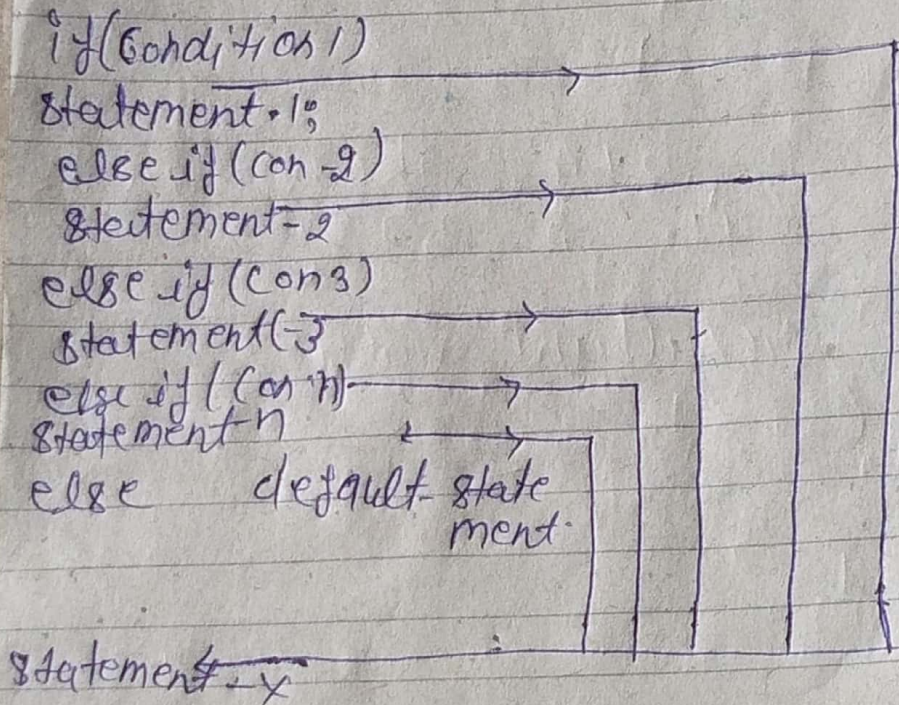 if(Condition 1)
statement.1;
else if (con-2)
statement-2
else if (Con3)
statement(-3
else if ((on n)
statement-n
else default-state
ment.
statement-x